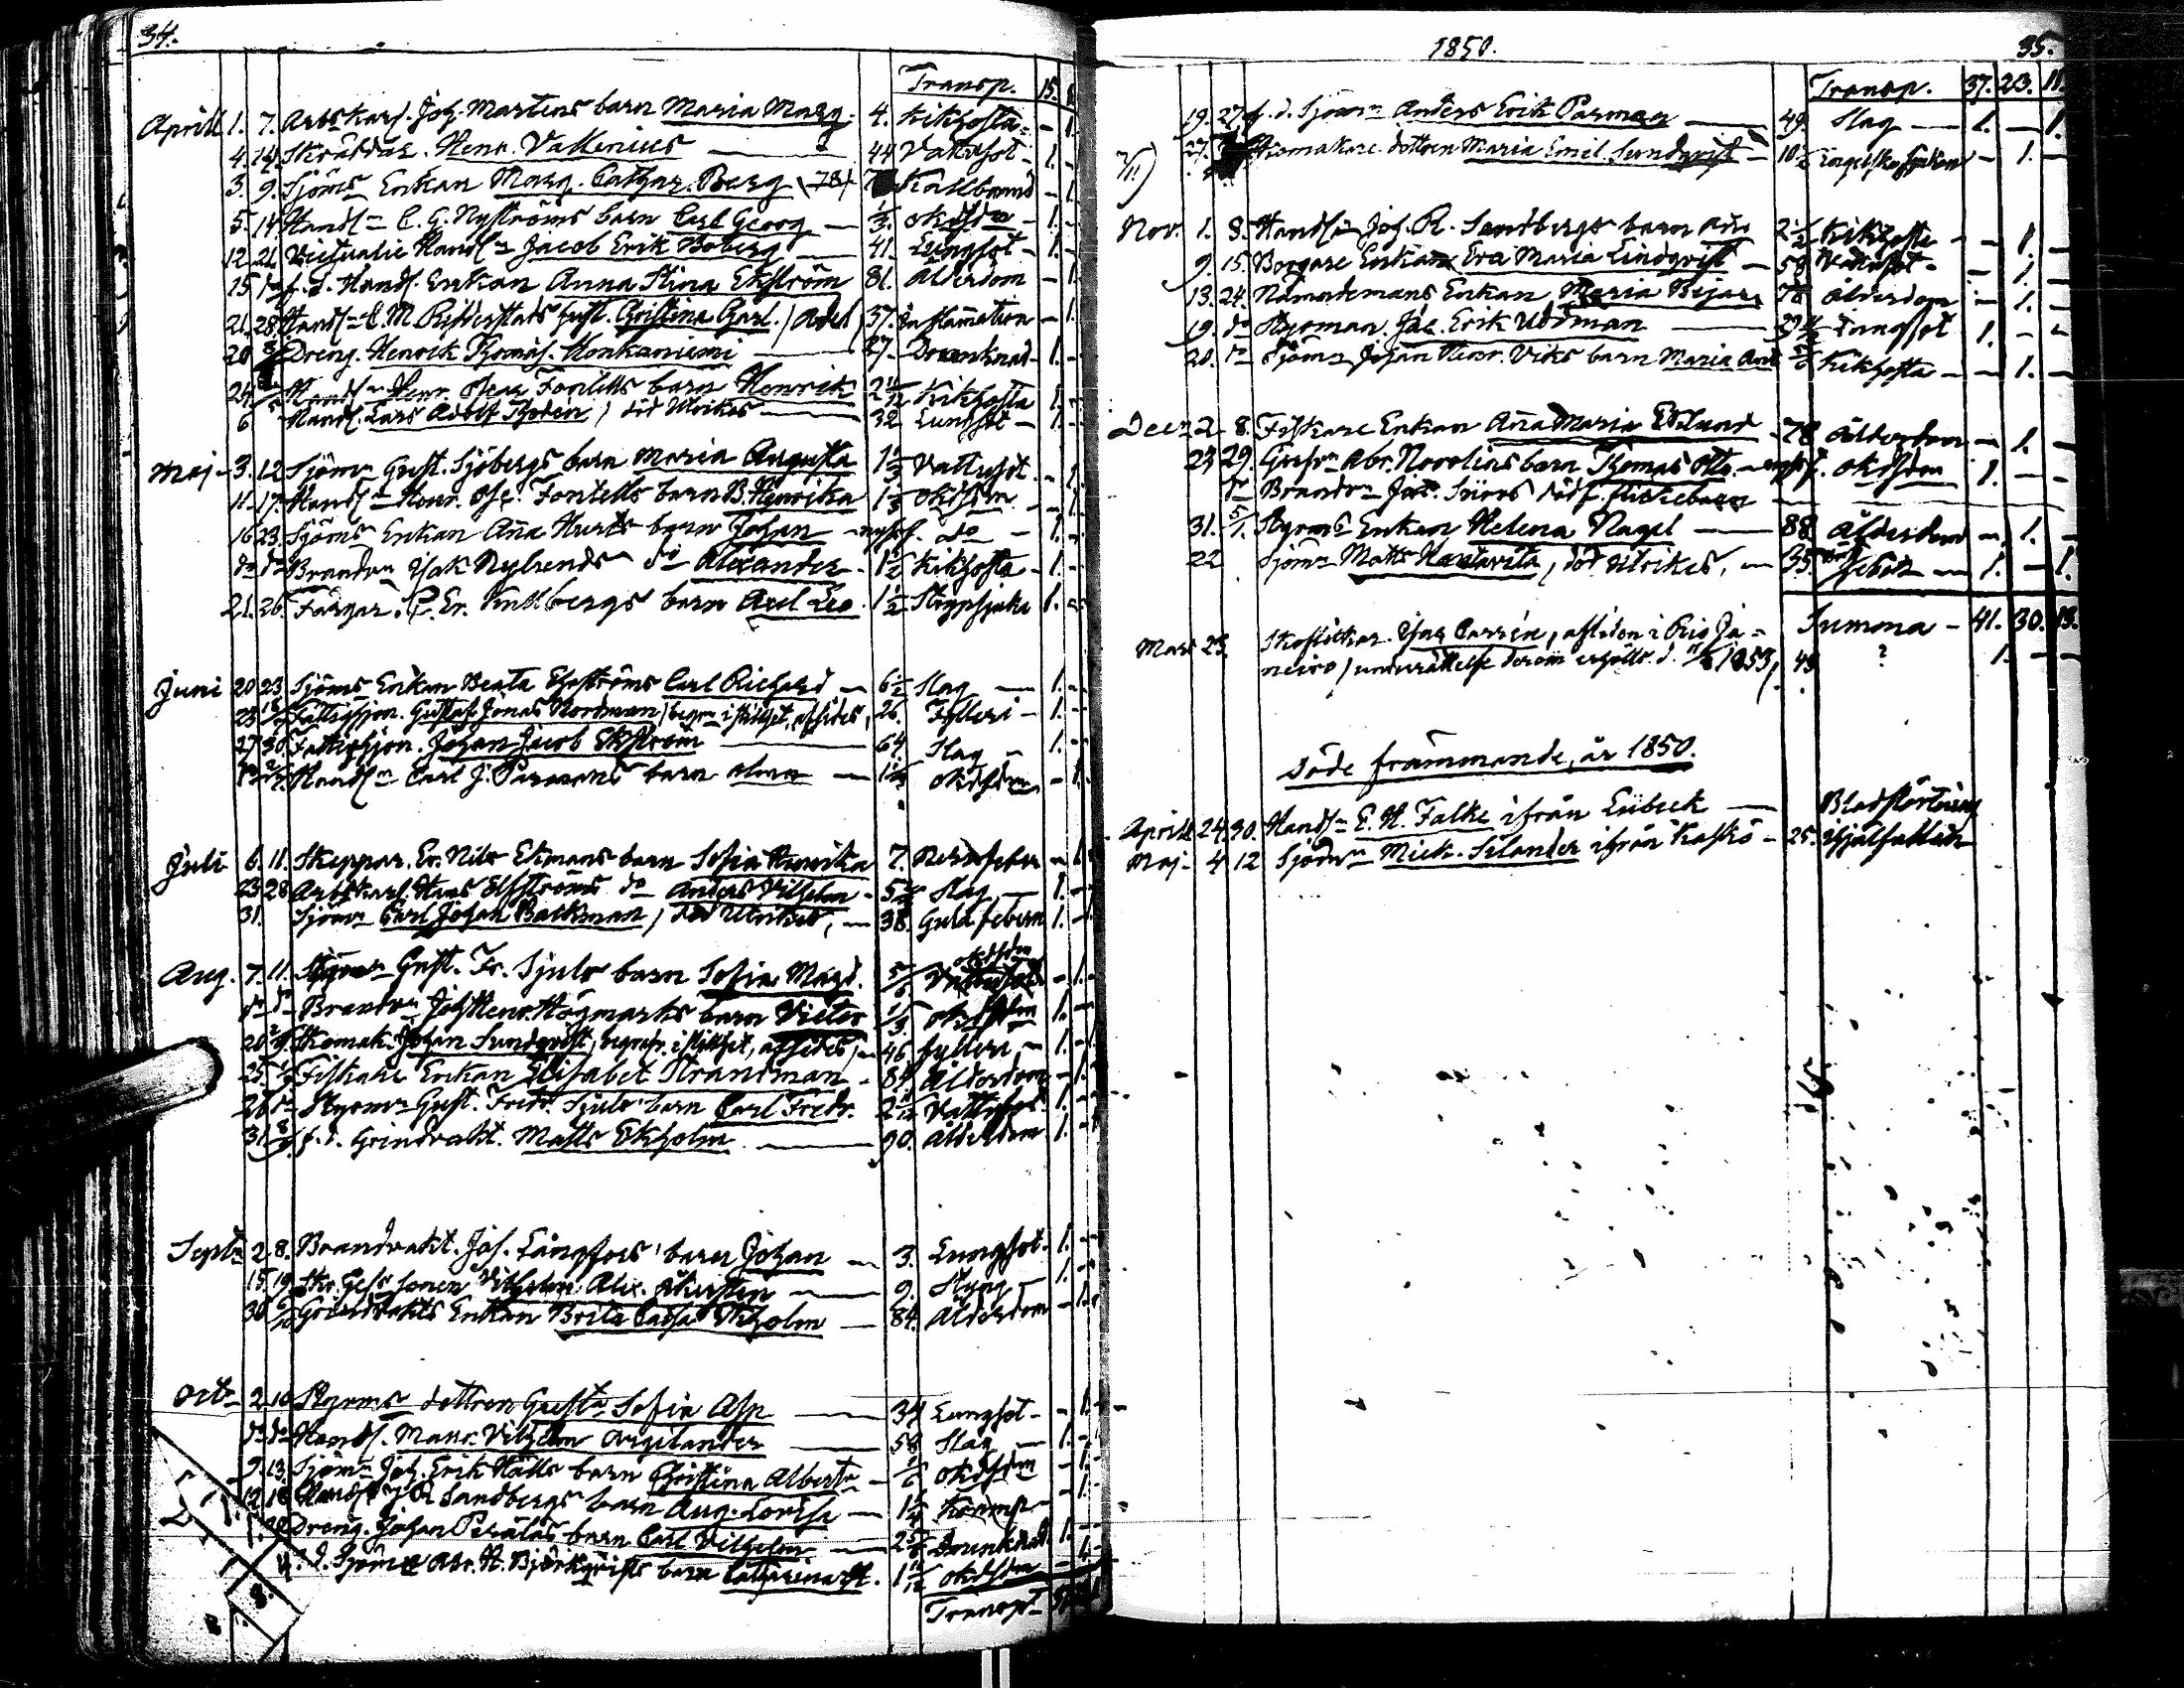 34.
Transp. 15.
Aprill 1. 7. Arbskarl. Joh. Martens barn Maria Marg. 4. Kikhosta - 1.
4. 14. Skräddar. Henr. Vallenius 44 Vattusot - 1.
3. 9. Sjöms Enkan Marg. Cathar. Berg (78) Kallbrand - 1.
5. 14 Handl. C. G. Nyströms barn Carl Georg 1/3 okdsdm - 1.
12. 21. Victualie Handl. Jacob Erik Boberg 41. Lungsot - 1.
15 do f. d. Handl. Enkan Anna Stina Ekström 81. Ålderdom - 1.
21. 28. Handl. C. M. Ridderstads hust. Christina Charl. / Adel / 37. Inflamation - 1.
20 Dreng. Henrik Thomas. Honkaniemi 27. Drunknad - 1.
24 Handl. Henr. Oscar Fontells barn Henrik 2 11/12 Kikhosta 1.
6 Handl. Lars Adolf Thodein / död Utrikes 32 Lungsot - 1.
Maj - 3. 12 Sjöm. Gust. Sjöbergs barn Maria Augusta 1 1/3 Vattusot - 1.
11. 17. Handl. Henr. Osc. Fontells barn B. Henrika 1 1/3 okdsdm - 1.
16 23. Sjöms Enkan Anna Hursts barn Johan - nyfödd. do - 1.
do do Brandv. Isak Nylunds do Alexander - 1 1/2 Kikhosta - 1.
21. 26. Färgar. C. Er. Kullbergs barn Axel Leo. 1 1/2 Strypsjuka 1.
Juni 20 23. Sjöms Enkan Beata Ekströms Carl Richard 6 1/2 Slag 1.
23 Fattighjon. Gustaf Jonas Nordman / begr. i stillhet, afsides, 26. Fylleri - 1.
27 30. Fattighjon. Johan Jacob Ekström 64 Slag - 1.
do Handl. Carl J. Parmans barn Alma okdsdm - 1.
Juli 6. 11. Skeppar. Er. Nils Ekmans barn Sofia Henrika 7. Nervfeber - 1.
23 28 Arbskarl. Hans Elfströms do Anders Vilhelm - Slag - 1.
31. Sjöm. Carl Johan Backman / död Utrikes, 38. Gula febern 1.
Aug. 7. 11. Styrm. Gust. Fr. Sjuls barn Sofia Magd. 5/6 okdsdm - 1.
do do Brandv. Joh. Henr. Högmarks barn Victor 1/3. okdsdm 1.
20 Skomak. Johan Sundqvist, begrafv. i stillhet, afsides, 46 fylleri - 1.
25. Fiskare Enkan Elisabet Strandman - 84. Ålderdom - 1.
26 do Styrm. Gust. Fredr. Sjuls barn Carl Fredr. 2 11/12 Vattusot 1.
31. f. d. Grindvakt. Matts Ekholm 90. Ålderdom 1.
Septr 2. 8. Brandvakt. Joh. Långfors' barn Johan 3. Lungsot. 1.
15. 19. Skr. Ges. sonen Vilhelm Alex. 9. Styng - 1.
30 Grindvakts Enkan Brita Cajsa Ekholm 84. Ålderdom - 1.
Octr 2. 10 Styrms dottren Gusta Sofia Asp 34 Lungsot - 1.
do do Handl. Maur. Vilhelm Argelander 58 Slag - 1.
9. 13. Sjöm. Joh. Erik Hälls barn Christina Albertn 1/6 okdsdm - 1.
12. 18 Handl. J R Sandbergs barn Aug. Lovisa - 1 1/4 Kramp - 1.
Dreng. Johan Peräläs barn Carl Vilhelm Drunknad 1.
f. d. Sjöm Abr. H. Björkqvists barn Catharina St. 1 11/12 okdsdm 1.
Transpt
1850. 35.
Transp. 37. 23. 11.
19. 27. f. d. Sjöm. Anders Erik Parman 49. Slag - 1. - 1.
27. Skomakare dottren Maria Emel. Sundqvist - 10 Engelska Sjukan - 1. -
Nov. 1. 8. Handl. Joh. R. Sandbergs barn Ada 2 1/2 Kikhosta - 1. -
9. 15. Borgare Enkan Eva Maria Lindqvist - 58 Vattusot - 1. -
13. 24. Nämndemans Enkan Maria Bejar 78 Ålderdom - 1. -
19. do Styrman. Jac. Erik Uddman Lungsot 1. - -
20. do Sjöm. Johan Henr. Viks barn Maria And 5/6 Kikhosta - 1. -
Decr 2 8. Fiskare Enkan Anna Maria Eklund - 78 Ålderdom - 1. -
23 29. Gesn. Abr. Norrlins barn Thomas Otto. - okdsdm 1. -
do Brandv. Jac. Siirs död f. flickebarn
31. 5/1. Styrms Enkan Helena Nagel 88 Ålderdom - 1. -
22 Sjöm. Matts Hautavita, död Utrikes, - 35. feber - 1. - 1.
Summa - 41. 30. 13.
Mars 23. Skoflickar. Isac Carrin, afliden i Rio Ja=
neiro / underrättelse derom erhölls d. 1853, 43 ? 1. -
Döde främmande, år 1850.
Aprill 24. 30. Handl. E. H. Falke ifrån Lübeck - Blodstörtning
Maj - 4 12 Sjöm. Mick. Selander ifrån Kaskö - 25. Ihjälfallen